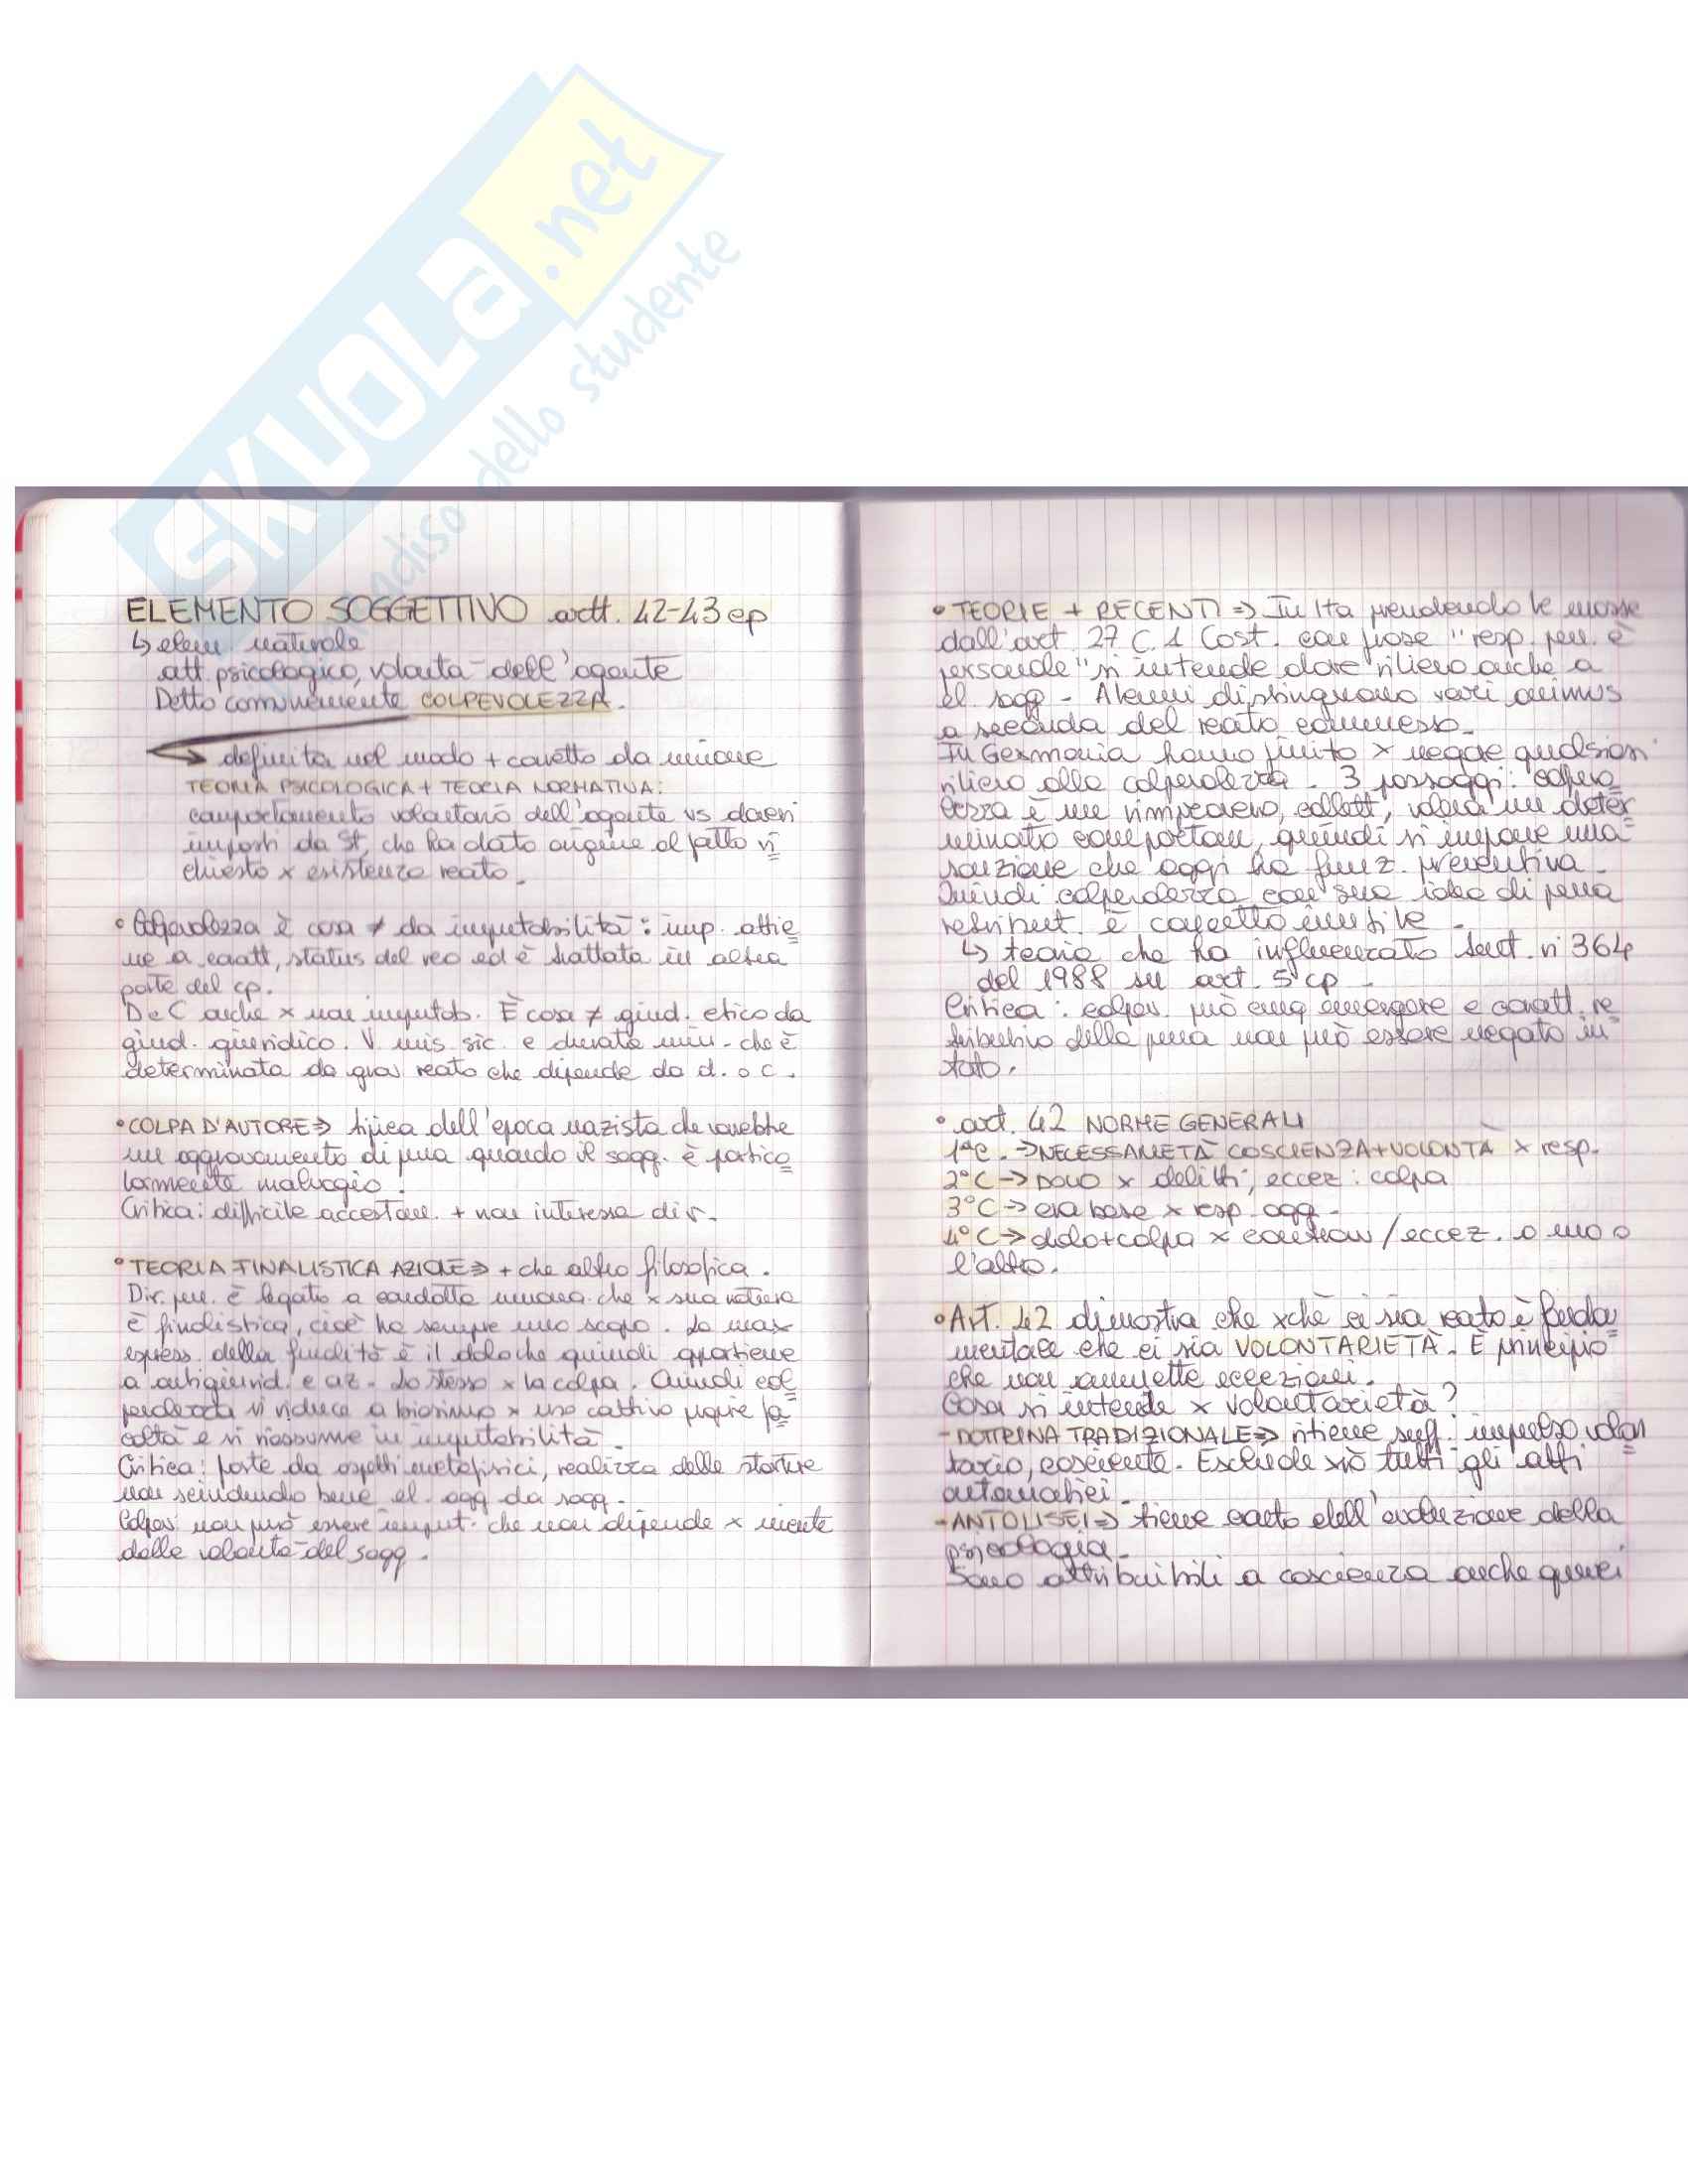 SKUOLA.net
dello studente
ELEMENTO SOGGETTIVO artt. 42-43 cp
↳ elem. naturale
att. psicologico, volontà dell'agente
Detto comunemente COLPEVOLEZZA.
→ definita nel modo + corretto da unione
TEORIA PSICOLOGICA + TEORIA NORMATIVA:
comportamento volontario dell'agente vs doveri
imposti da St, che ha dato origine al fatto ri
chiesto x esistenza reato.
• Colpevolezza è cosa ≠ da imputabilità: imp. attie
ne a caratt, status del reo ed è trattata in altra
parte del cp.
D e C anche x non imputab. È cosa ≠ giud. etico da
giud. giuridico. V. mis. sic. e durata min. che è
determinata da grav. reato che dipende da d. o c.
• COLPA D'AUTORE ⇒ tipica dell'epoca nazista che vorrebbe
un aggravamento di pena quando il sogg. è partico
larmente malvagio.
Critica: difficile accertam. + non interessa dir.
• TEORIA FINALISTICA AZIONE ⇒ + che altro filosofica.
Dir. pen. è legato a condotta umana che x sua natura
è finalistica, cioè ha sempre uno scopo. La max
espress. della finalità è il dolo che quindi appartiene
a antigiurid. e az. Lo stesso x la colpa. Quindi col
pevolezza si riduce a biasimo x uso cattivo proprie fa
coltà e si riassume in imputabilità.
Critica: parte da aspetti metafisici, realizza delle storture
non scindendo bene el. ogg da sogg.
Colpev non può essere imput. che non dipende x niente
dalla volontà del sogg.
• TEORIE + RECENTI ⇒ In Ita prendendo le mosse
dall'art. 27 C.1 Cost. con frase "resp. pen. è
personale" si intende dare rilievo anche a
el. sogg - Alcuni distinguono vari animus
a seconda del reato commesso.
In Germania hanno finito x negare qualsiasi
rilievo alla colpevolezza. 3 passaggi: colpevo
lezza è un rimprovero, collett, valuta un deter
minato comportam, quindi si impone una
sanzione che oggi ha funz. preventiva.
Quindi colpevolezza con sua idea di pena
retribut. è concetto inutile.
↳ teoria che ha influenzato Sent. n 364
del 1988 su art. 5 cp.
Critica: colpev. può cmq emergere e caratt. re
tributivo della pena non può essere negato in
toto.
• art. 42 NORME GENERALI
1°C. → NECESSARIETÀ COSCIENZA+VOLONTÀ x resp.
2°C → DOLO x delitti, eccez: colpa
3°C → era base x resp. ogg.
4°C → dolo+colpa x contravv / eccez. o uno o
l'altro.
• Art. 42 dimostra che xchè ci sia reato è fonda
mentale che ci sia VOLONTARIETÀ. È principio
che non ammette eccezioni.
Cosa si intende x volontarietà?
- DOTTRINA TRADIZIONALE ⇒ ritiene suff. impulso volon
tario, cosciente. Esclude xiò tutti gli atti
automatici.
- ANTOLISEI ⇒ tiene conto dell'evoluzione della
psicologia.
Sono attribuibili a coscienza anche quei